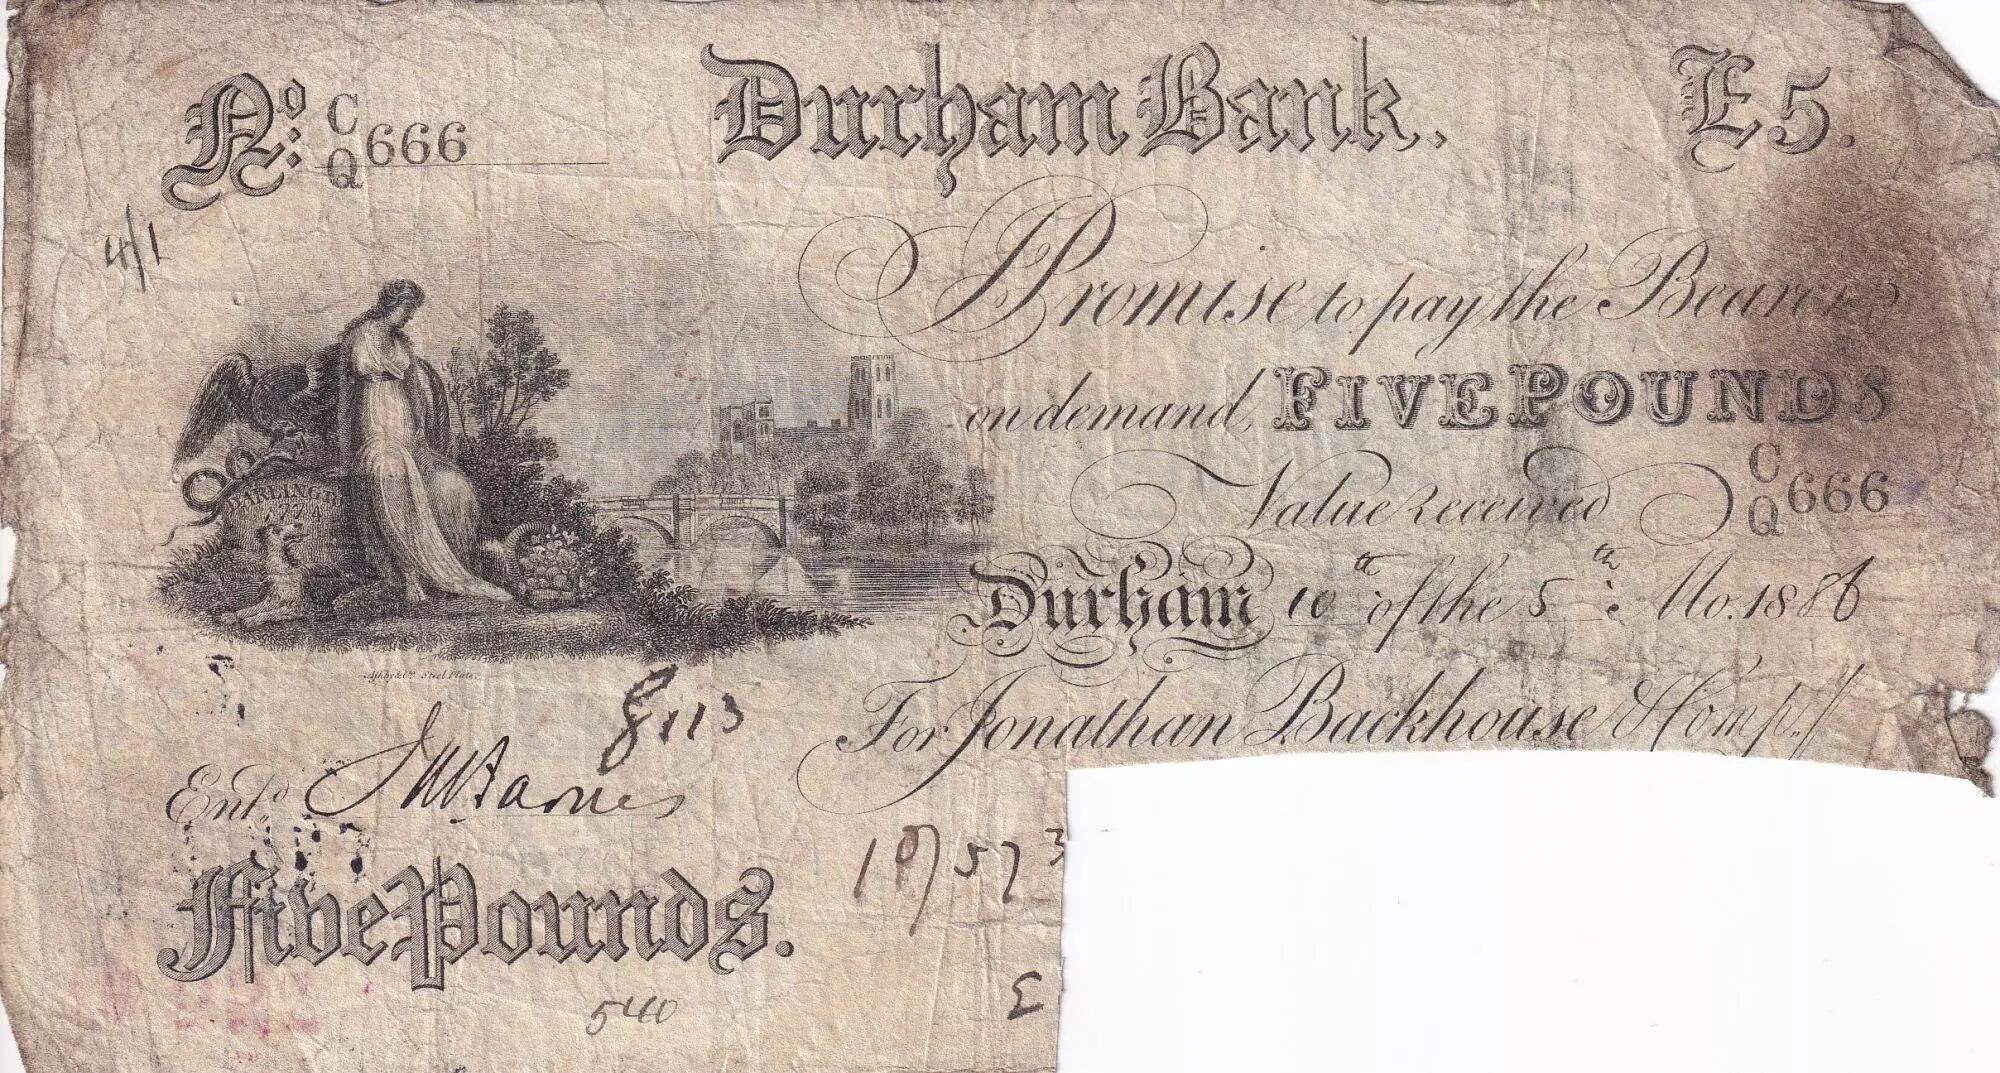 No: C/Q 666 Durham Bank. £5.
4/1
Promise to pay the Bearer
on demand, FIVE POUNDS
Value received C/Q 666
DARLINGTON
1774
Durham 10th of the 5th Mo. 1886
Ashby & Co. Steel Plate.
8113
For Jonathan Backhouse & Comp.y
Entd
10/573
Five Pounds.
£
540